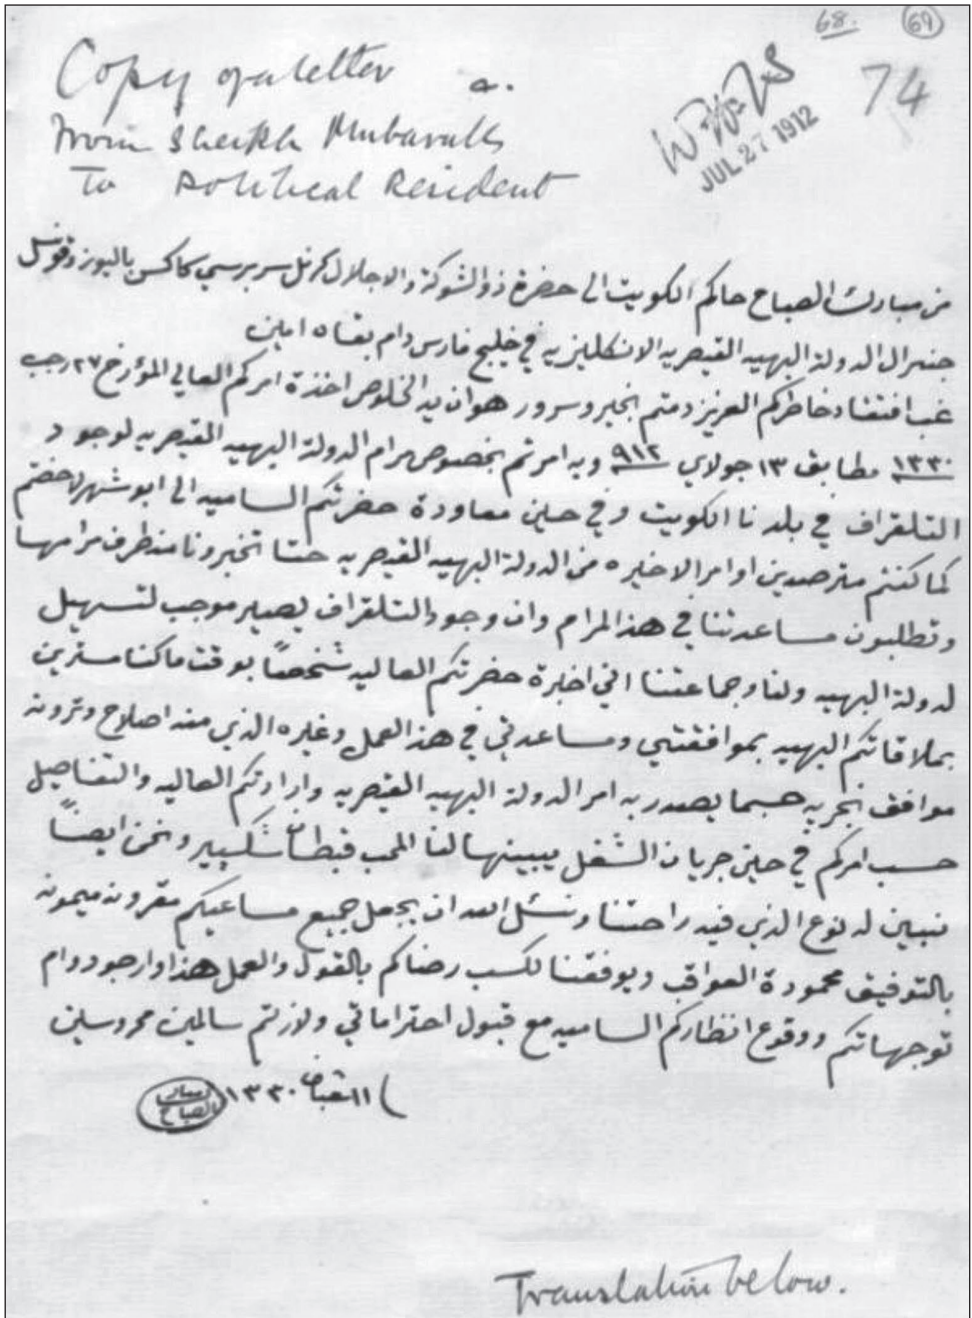 68. 69
Copy of a letter a.
from Sheikh Mubarak
To Political Resident
74
JUL 27 1912
من مبارك الصباح حاكم الكويت الى حضرة ذو الشوكة والاجلال كرنل سر برسي كاكس باليوز وقونسل
جنرال الدولة البهيه القيصريه الانكليزيه في خليج فارس دام بقاه امين
غب افتقاد خاطركم العزيز دمتم بخير وسرور هو ان بيد الخلوص اخذة امركم العالي المؤرخ ٢٧ رجب
١٣٣٠ مطابق ١٣ جولاي ٩١٢ وبه امرتم بخصوص مرام الدولة البهيه القيصريه لوجود
التلقراف في بلدنا الكويت وفي حين معاودة حضرتكم الساميه الى ابوشهر لاحضتم
كما كنتم مترصدين اوامر الاخيره من الدولة البهيه القيصريه حتا تخبرونا منطرف مرامها
وتطلبون مساعدتنا في هذا المرام وان وجود التلقراف يصير موجب لتسهيل
لدولة البهيه ولنا وجماعتنا انني اخبرة حضرتكم العاليه شخصاً بوقت ماكنا مسترين
بملاقاتكم البهيه بموافقتي ومساعدتي في هذ العمل وغيره الذي منه اصلاح وترونه
موافق نجريه حسبما يصدر به امر الدولة البهيه القيصريه وارادتكم العاليه والتفاصيل
حسب امركم في حين جريان الشغل يبينها لنا المحب قبطان شكسبير ونحن ايضاً
نبين له نوع الذي فيه راحتنا ونسئل الله ان يجعل جميع مساعيكم مقرونه ميمونه
بالتوفيق محمودة العواقب ويوفقنا لكسب رضاكم بالقول والعمل هذا وارجو دوام
توجهاتكم ووقوع انظاركم الساميه مع قبول احتراماتي ولازلتم سالمين محروسين
١١ شعبان ١٣٣٠
مبارك الصباح
Translation below.